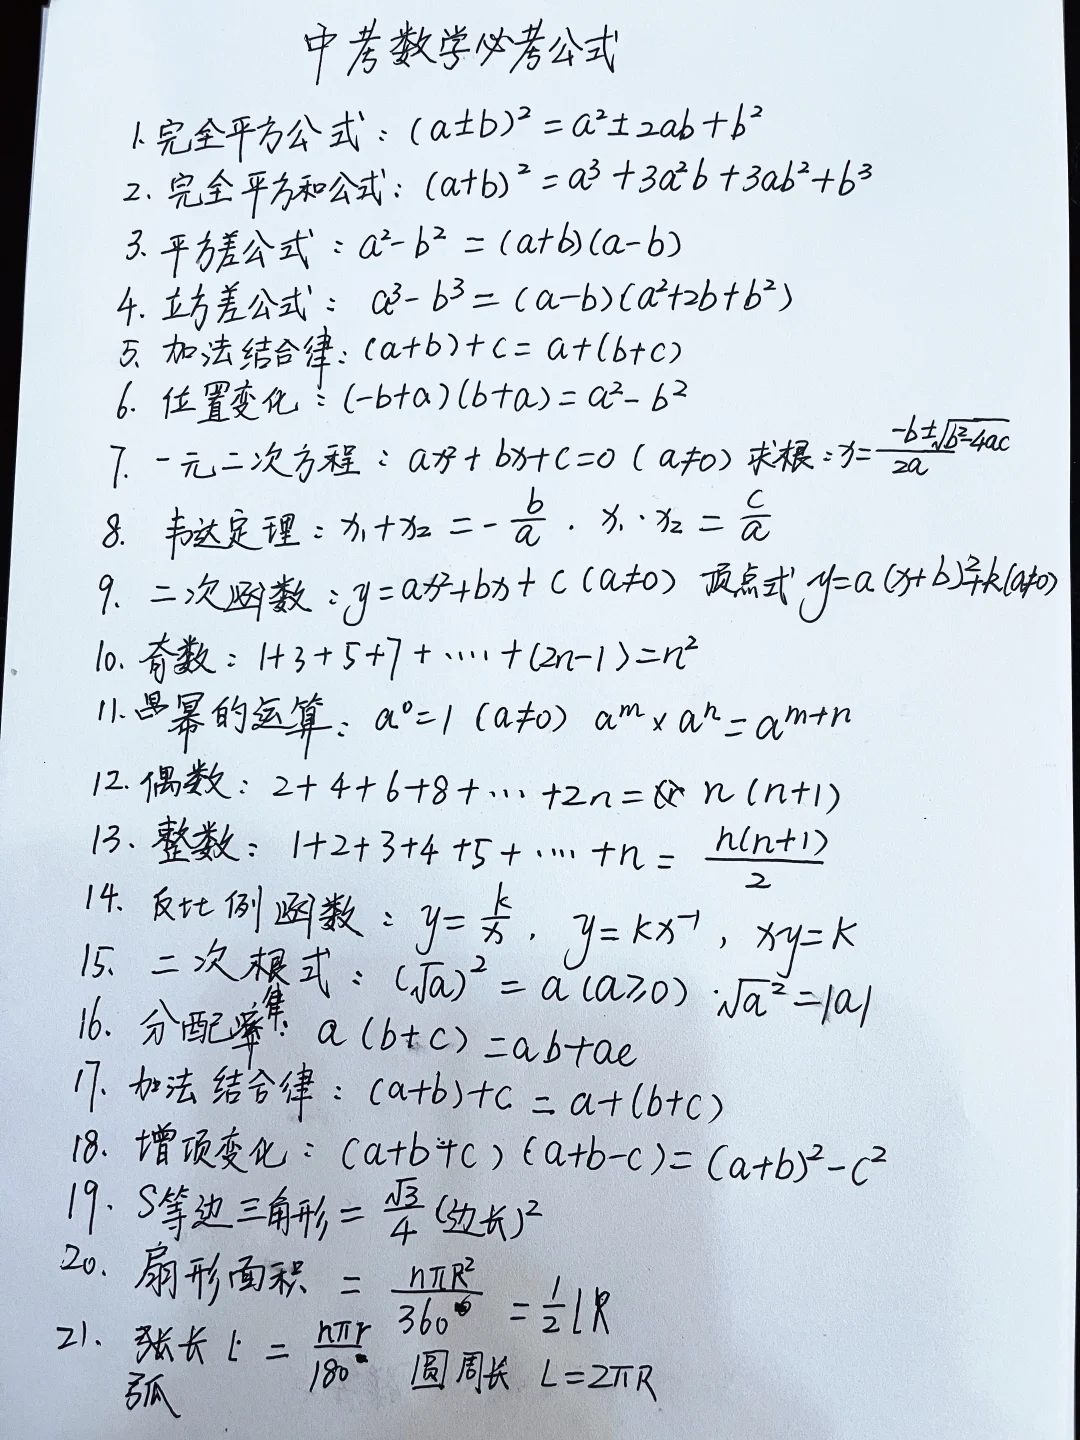 中考数学必考公式
1. 完全平方公式：(a±b)²=a²±2ab+b²
2. 完全平方和公式：(a+b)²=a³+3a²b+3ab²+b³
3. 平方差公式：a²-b²=(a+b)(a-b)
4. 立方差公式：a³-b³=(a-b)(a²+2b+b²)
5. 加法结合律：(a+b)+c=a+(b+c)
6. 位置变化：(-b+a)(b+a)=a²-b²
7. 一元二次方程：ax²+bx+c=0(a≠0)求根：x=(-b±√(b²-4ac))/2a
8. 韦达定理：x₁+x₂=-b/a . x₁·x₂=c/a
9. 二次函数：y=ax²+bx+c(a≠0) 顶点式 y=a(x+b)²+k(a≠0)
10. 奇数：1+3+5+7+……+(2n-1)=n²
11. 幂的运算：a⁰=1(a≠0) aᵐ×aⁿ=aᵐ⁺ⁿ
12. 偶数：2+4+6+8+…+2n=n(n+1)
13. 整数：1+2+3+4+5+……+n=n(n+1)/2
14. 反比例函数：y=k/x, y=kx⁻¹, xy=k
15. 二次根式：(√a)²=a(a≥0)·√a²=|a|
16. 分配：a(b+c)=ab+ac
17. 加法结合律：(a+b)+c=a+(b+c)
18. 增项变化：(a+b+c)(a+b-c)=(a+b)²-c²
19. S等边三角形=√3/4(边长)²
20. 扇形面积=nπR²/360=1/2lR
21. 长l=nπr/180 圆周长 L=2πR
弧